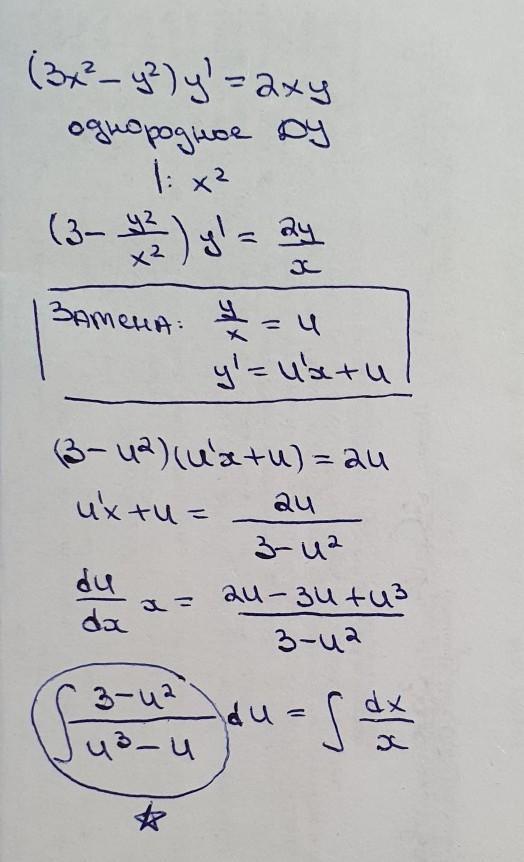 (3x² − y²) y' = 2xy
однородное ДУ
|: x²
(3 − y²/x²) y' = 2y/x
Замена: y/x = u
y' = u'x + u
(3 − u²)(u'x + u) = 2u
u'x + u = 2u/(3 − u²)
du/dx x = (2u − 3u + u³)/(3 − u²)
∫ (3 − u²)/(u³ − u) du = ∫ dx/x
☆